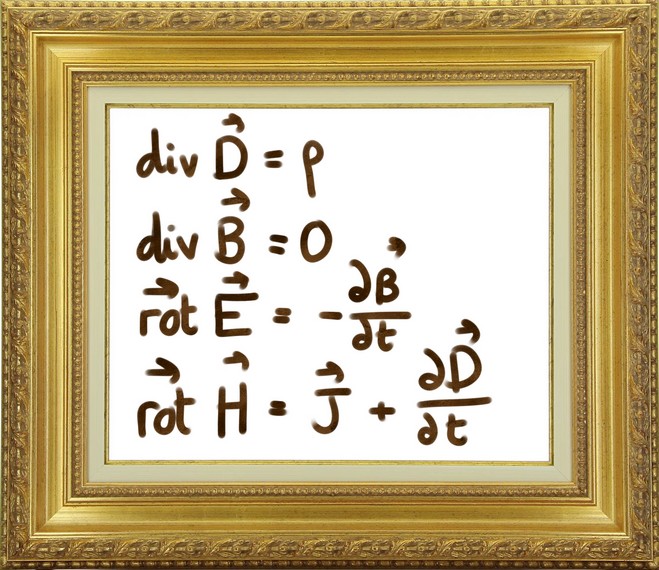 div D⃗ = ρ
div B⃗ = 0
r⃗ot E⃗ = - ∂B⃗/∂t
r⃗ot H⃗ = J⃗ + ∂D⃗/∂t